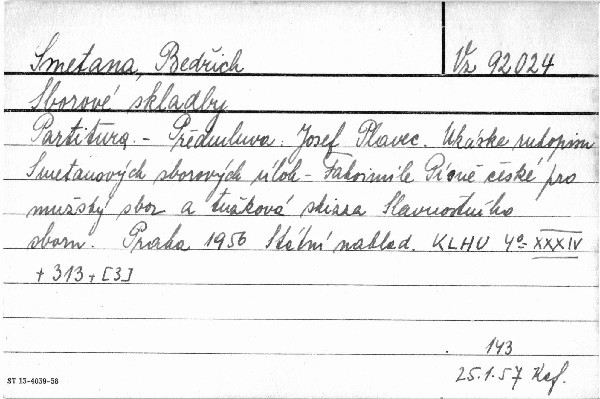 Smetana, Bedřich
Vz 92024
Sborové skladby
Partitura. - Předmluva: Josef Plavec. Ukázka rukopisu
Smetanových sborových úloh - Faksimile Písně české pro
mužský sbor a tužková skizza Slavnostního
sboru. Praha 1956 Státní naklad. KLHU 4°- XXXIV
+ 313 + [3]
143
25.1.57 Kef.
ST 13-4039-56